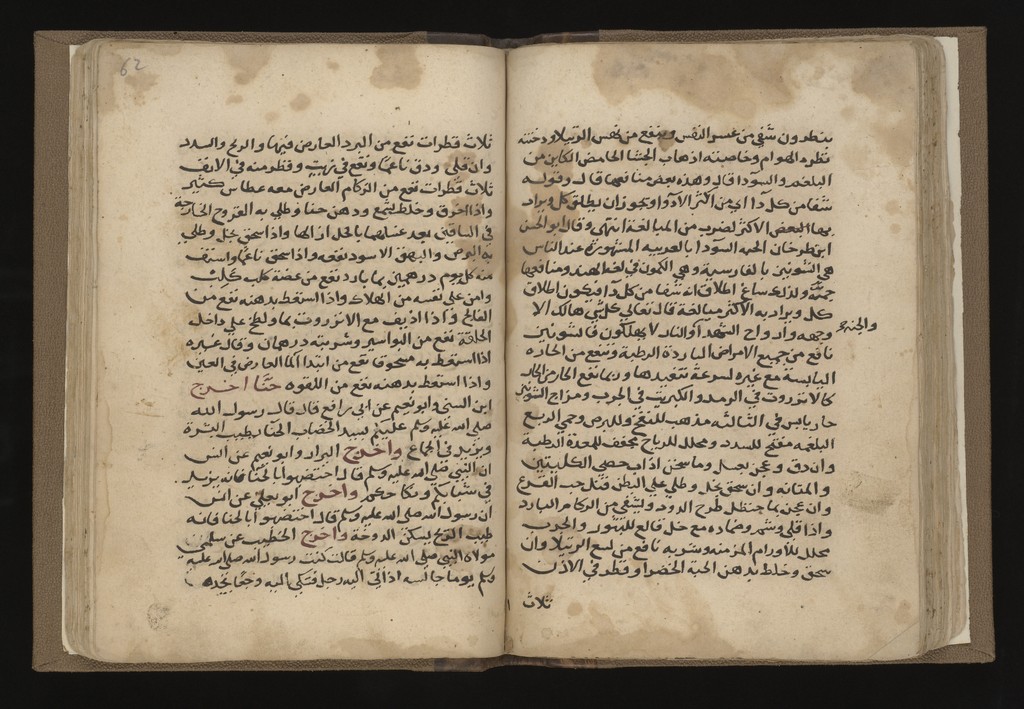 بنطرون شفي من عسر النفس وينفع من نهس الرتيلا ودخنته
تطرد الهوام وخاصيته اذهاب الجشا الحامض الكاين من
البلغم والسودا قال وهذه بعض منافعها قال وقوله
شفا من كل دا اي من اكثر الادوا ويجوز ان يطلق كل ويراد
بها البعض الاكثر لضرب من المبالغة انتهى وقال ابو الحسن
ابن طرخان الحبه السودا بالعربيه المشهورة عند الناس
هي الشونيز بالفارسية وهي الكمون في لغة الهند ومنافعها
جمة ولذلك ساغ اطلاق انه شفا من كل دا فيكون اطلاق
كل ويراد به الاكثر مبالغة قال تعالى كل شي هالك الا
وجهه وارواح الشهدا والنار لا يهلكون فالشونيز
والجنة
نافع من جميع الامراض الباردة الرطبة وينفع من الحاره
اليابسة مع غيره لسرعة تنفيذها وربما نفع الحار من الحار
كالانزروت في الرمد والكبريت في الجرب ومزاج الشونيز
حار يابس في الثالثه مذهب للنفخ وللبرص وحمي الربع
البلغميه مفتح للسدد ومحلل للرياح مجفف للمعدة الرطبة
وان دق وعجن بعسل وما سخن اذاب حصى الكليتين
والمثانه وان سحق بخل وطلي علي البطن قتل حب القرع
وان عجن بما حنظل طرح الدود ويشفي من الزكام البارد
واذا قلي وشم وضماده مع خل قالع للبثور والجرب
محلل للاورام المزمنه وشربه نافع من لسع الرتيلا وان
سحق وخلط بدهن الحبة الخضرا وقطر في الاذن
ثلاث
62
ثلاث قطرات نفع من البرد العارض فيها والريح والسدد
وان قلي ودق ناعما ونقع في زيت وقطر منه في الانف
ثلاث قطرات نفع من الزكام العارض معه عطاس كثير
واذا احرق وخلط بشمع ودهن حنا وطلي به القروح الخارجة
في الساقين بعد غسلهما بالخل ازالها واذا سحق بخل وطلي
به البرص والبهق الاسود نفعه واذا سحق ناعما واستف
منه كل يوم درهمين بما بارد نفع من عضة كلب كلب
وامن على نفسه من الهلاك واذا استعط بدهنه نفع من
الفالج واذا اذيف مع الانزروت بما ولطخ علي داخل
الحلقة نفع من البواسير وشربته درهمان وقال غيره
اذا استعط به مسحوقا نفع من ابتدا الما العارض في العين
واذا استعط بدهنه نفع من اللقوه حنا اخرج
ابن السني وابو نعيم عن ابي رافع قال قال رسول الله
صلي الله عليه وسلم عليكم بسيد الخضاب الحنا يطيب البشرة
ويزيد في الجماع واخرج البزار وابو نعيم عن انس
ان النبي صلي الله عليه وسلم قال اختضبوا بالحنا فانه يزيد
في شبابكم ونكاحكم واخرج ابو يعلي عن انس
ان رسول الله صلي الله عليه وسلم قال اختضبوا بالحنا فانه
طيب الريح يسكن الدوخة واخرج الخطيب عن سلمي
مولاة النبي صلي الله عليه وسلم قالت كنت رسول الله صلي الله عليه
وسلم يوما جالسه اذ اتي اليه رجل فشكي اليه وجعا يجده